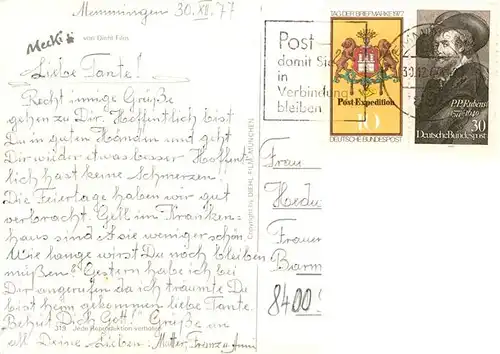 Memmingen 30.XII.77
Mecki
von Diehl Film
Liebe Tante!
Recht innige Grüße
gehen zu Dir. Hoffentlich bist
Du in guten Händen und geht
Dir wieder etwas besser. Hoffent
lich hast keine Schmerzen!
Die Feiertage haben wir gut
verbracht. Gell im Kranken-
haus sind sie weniger schön.
Wie lange wirst Du noch bleiben
müßen? Gestern habe ich bei
Dir angerufen da ich träumte Du
bist heim gekommen liebe Tante.
Behüt Dich Gott! Grüße an
all Deine Lieben: Mutter, Franz
J13 Jede Reproduktion verboten
Copyright by DIEHL-FILM MÜNCHEN
Post
damit Sie
in
Verbindung
bleiben
TAG DER BRIEFMARKE 1977
Post-Expedition
10
DEUTSCHE BUNDESPOST
30.12.
P.P. Rubens
1577-1640
30
Deutsche Bundespost
Frau
Frauen
Barm
8400